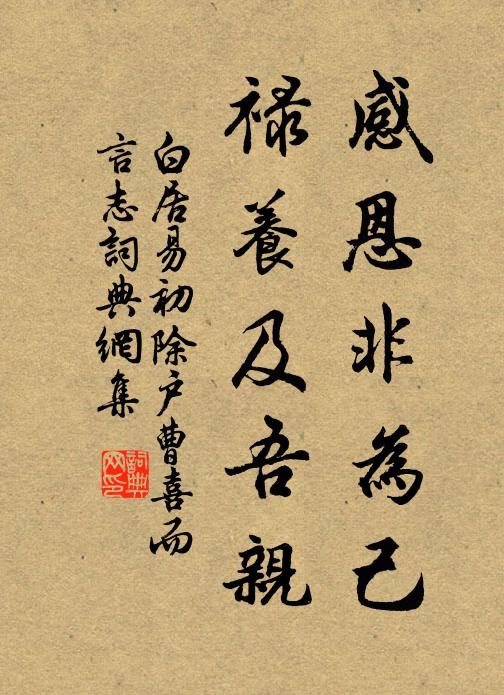 感恩非為己
祿養及吾親
白居易初除户曹喜而
言志詞典網集
詞典
网印